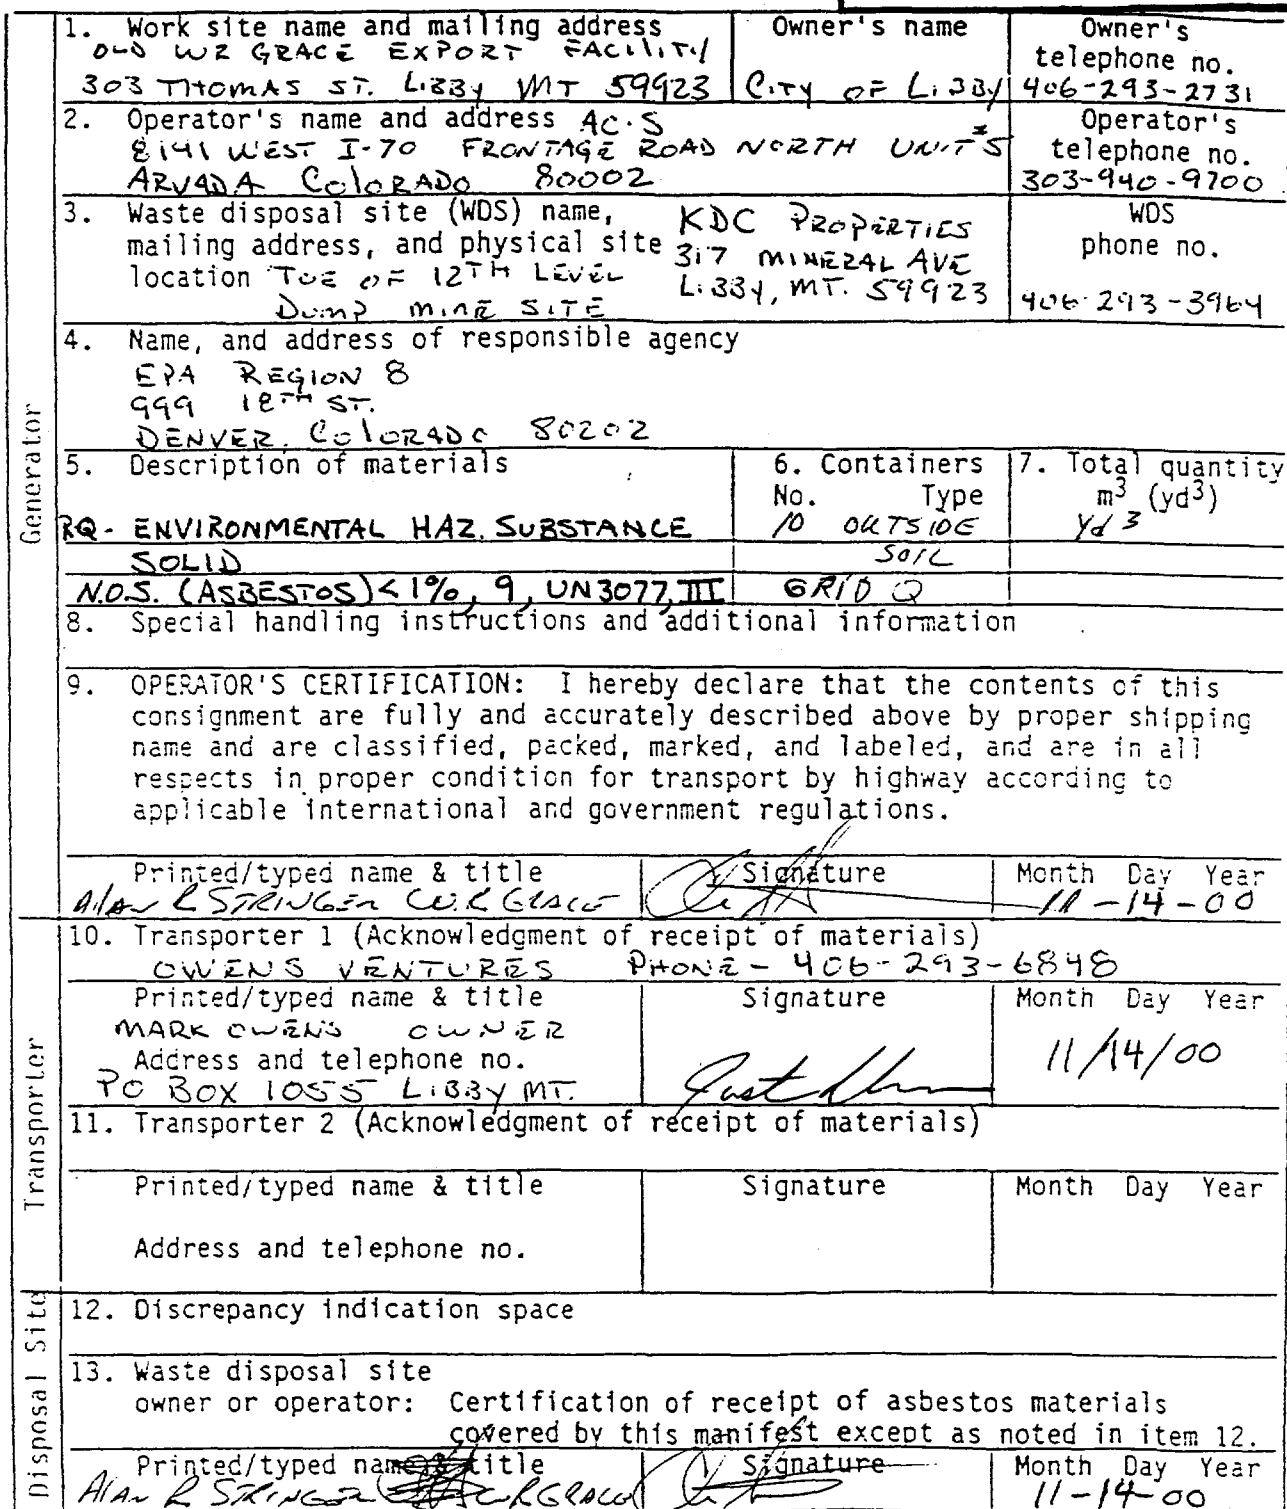 1. Work site name and mailing address
OLD WR GRACE EXPORT FACILITY
303 THOMAS ST. LIBBY MT 59923
Owner's name
CITY OF LIBBY
Owner's
telephone no.
406-293-2731
2. Operator's name and address AC.S
8141 WEST I-70 FRONTAGE ROAD NORTH UNIT #5
ARVADA COLORADO 80002
Operator's
telephone no.
303-940-9700
3. Waste disposal site (WDS) name,
mailing address, and physical site
location TOE OF 12TH LEVEL
DUMP MINE SITE
KDC PROPERTIES
317 MINERAL AVE
LIBBY, MT. 59923
WDS
phone no.
406-293-3964
Generator
4. Name, and address of responsible agency
EPA REGION 8
999 18TH ST.
DENVER, COLORADO 80202
5. Description of materials
6. Containers
No. Type
7. Total quantity
m3 (yd3)
RQ- ENVIRONMENTAL HAZ. SUBSTANCE
10 OUTSIDE
Yd 3
SOLID
SOIL
N.O.S. (ASBESTOS) < 1%, 9, UN3077, III
GRID Q
8. Special handling instructions and additional information
9. OPERATOR'S CERTIFICATION: I hereby declare that the contents of this
consignment are fully and accurately described above by proper shipping
name and are classified, packed, marked, and labeled, and are in all
respects in proper condition for transport by highway according to
applicable international and government regulations.
Printed/typed name & title
Signature
Month Day Year
Alan R STRINGER W.R GRACE
11-14-00
Transporter
10. Transporter 1 (Acknowledgment of receipt of materials)
OWENS VENTURES PHONE - 406-293-6848
Printed/typed name & title
Signature
Month Day Year
MARK OWENS OWNER
Address and telephone no.
11/14/00
PO BOX 1055 LIBBY MT.
11. Transporter 2 (Acknowledgment of receipt of materials)
Printed/typed name & title
Signature
Month Day Year
Address and telephone no.
Disposal Site
12. Discrepancy indication space
13. Waste disposal site
owner or operator: Certification of receipt of asbestos materials
covered by this manifest except as noted in item 12.
Printed/typed name & title
Signature
Month Day Year
Alan R STRINGER W R GRACE
11-14-00